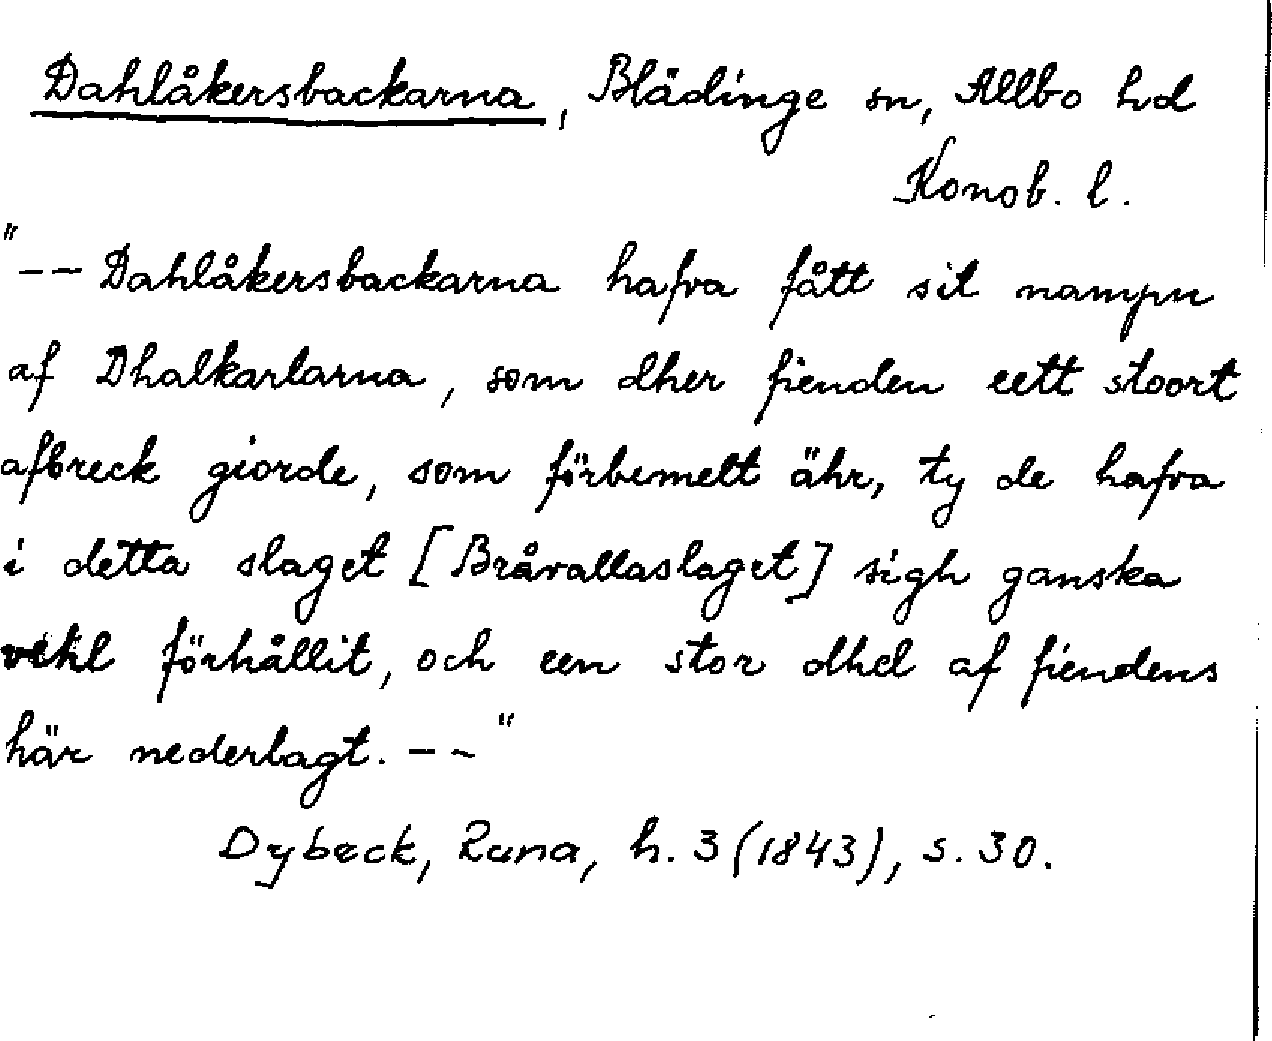 Dahlåkersbackarna, Blädinge sn, Allbo hd
Kronob. l.
"-- Dahlåkersbackarna hafva fått sit nampn
af Dhalkarlarna, som dher fienden eett stoort
afbreck giorde, som förbemelt ähr, ty de hafva
i detta slaget [Bråvallaslaget] sigh ganska
vehl förhållit, och een stor dhel af fiendens
här nederlagt. -- "
Dybeck, Runa, h. 3 (1843), s. 30.